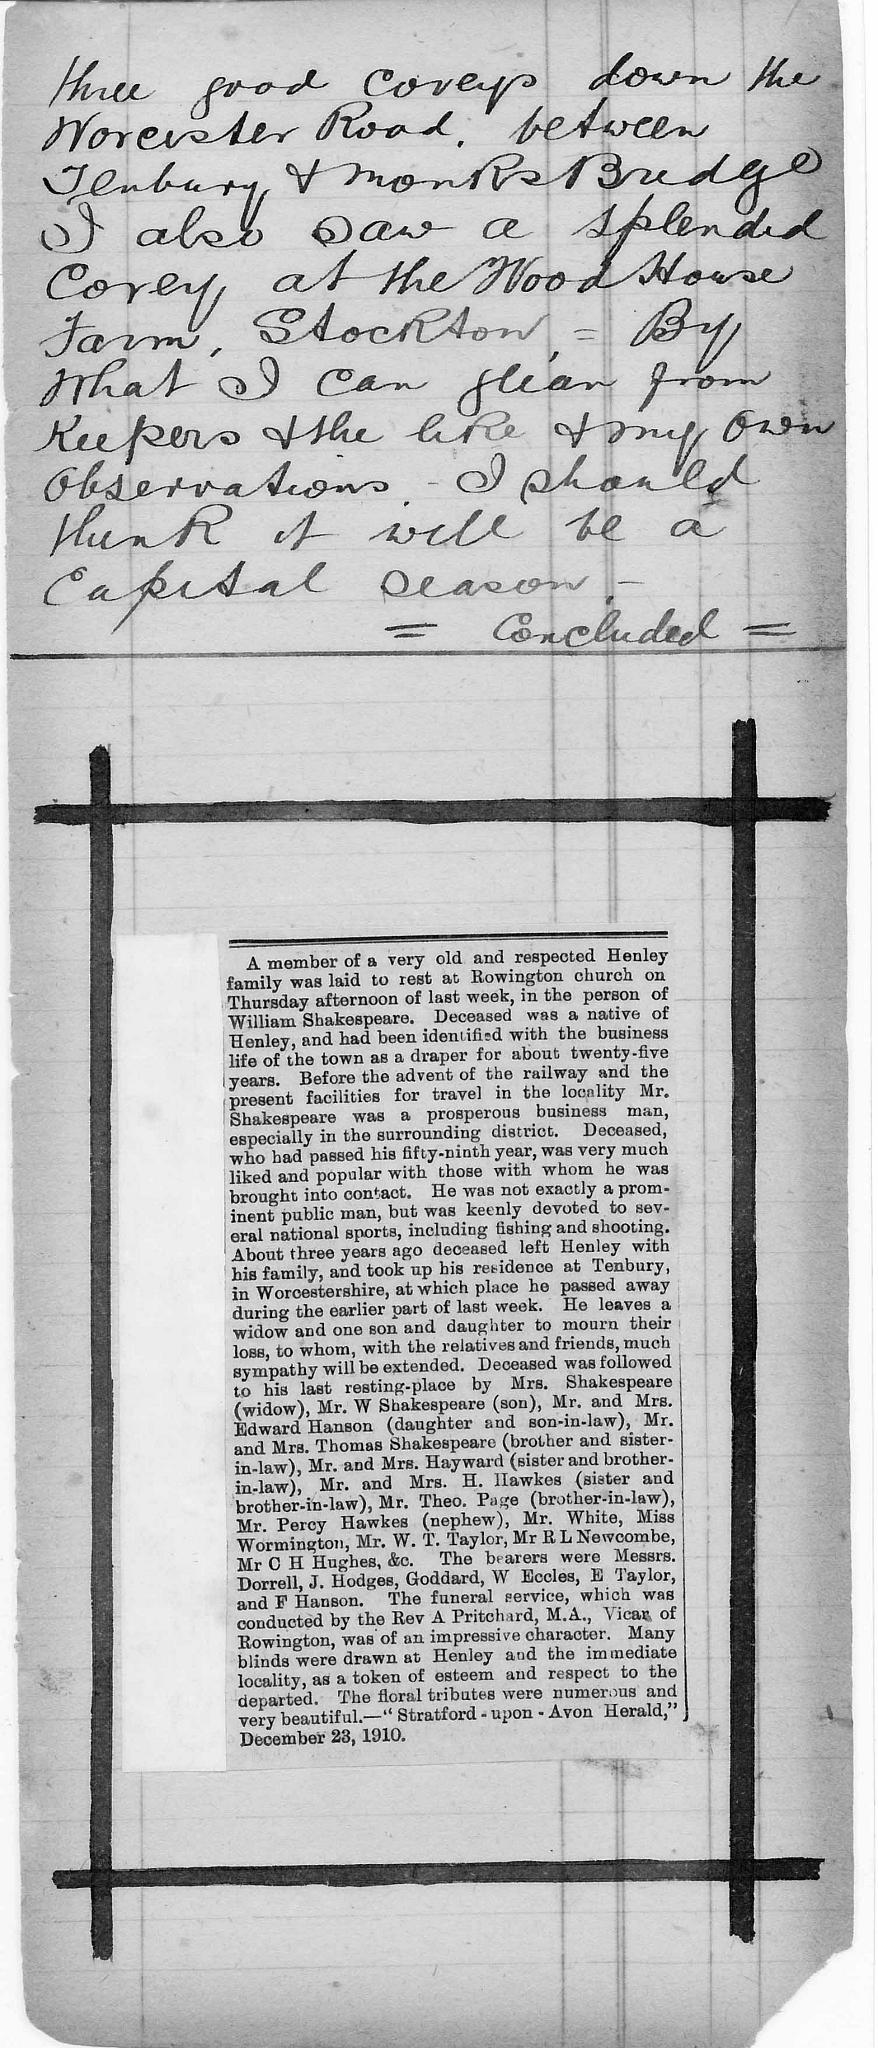 three good coveys down the
Worcester Road, between
Tenbury & Monks Bridge
I also saw a splended
Covey, at the Wood House
Farm, Stockton, = By
What I can glean from
Keepers & the like & my own
Observations - I should
think it will be a
Capital season -
= Concluded =
A member of a very old and respected Henley
family was laid to rest at Rowington church on
Thursday afternoon of last week, in the person of
William Shakespeare. Deceased was a native of
Henley, and had been identified with the business
life of the town as a draper for about twenty-five
years. Before the advent of the railway and the
present facilities for travel in the locality Mr.
Shakespeare was a prosperous business man,
especially in the surrounding district. Deceased,
who had passed his fifty-ninth year, was very much
liked and popular with those with whom he was
brought into contact. He was not exactly a prom-
inent public man, but was keenly devoted to sev-
eral national sports, including fishing and shooting.
About three years ago deceased left Henley with
his family, and took up his residence at Tenbury,
in Worcestershire, at which place he passed away
during the earlier part of last week. He leaves a
widow and one son and daughter to mourn their
loss, to whom, with the relatives and friends, much
sympathy will be extended. Deceased was followed
to his last resting-place by Mrs. Shakespeare
(widow), Mr. W Shakespeare (son), Mr. and Mrs.
Edward Hanson (daughter and son-in-law), Mr.
and Mrs. Thomas Shakespeare (brother and sister-
in-law), Mr. and Mrs. Hayward (sister and brother-
in-law), Mr. and Mrs. H. Hawkes (sister and
brother-in-law), Mr. Theo. Page (brother-in-law),
Mr. Percy Hawkes (nephew), Mr. White, Miss
Wormington, Mr. W. T. Taylor, Mr R L Newcombe,
Mr C H Hughes, &c. The bearers were Messrs.
Dorrell, J. Hodges, Goddard, W Eccles, E Taylor,
and F Hanson. The funeral service, which was
conducted by the Rev A Pritchard, M.A., Vicar of
Rowington, was of an impressive character. Many
blinds were drawn at Henley and the immediate
locality, as a token of esteem and respect to the
departed. The floral tributes were numerous and
very beautiful.—"Stratford-upon-Avon Herald,"
December 23, 1910.